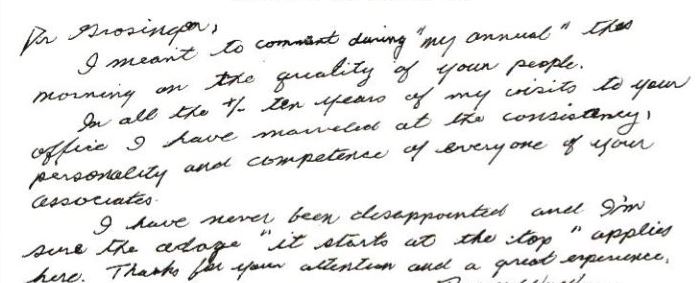 Dr Grosinger,
I meant to comment during "my annual" this
morning on the quality of your people.
In all the +/- ten years of my visits to your
office I have marveled at the consistency,
personality and competence of everyone of your
associates.
I have never been disappointed and I'm
sure the adage "it starts at the top" applies
here. Thanks for your attention and a great experience.